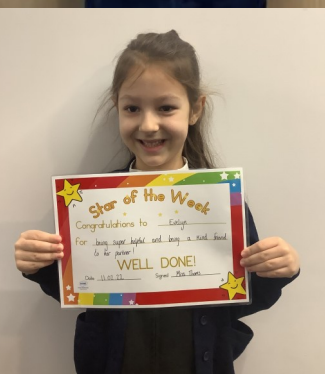 Star of the Week
Congratulations to Evelyn
for being super helpful and being a kind friend
to her partner!
WELL DONE!
Date 11.03.22 Signed Miss